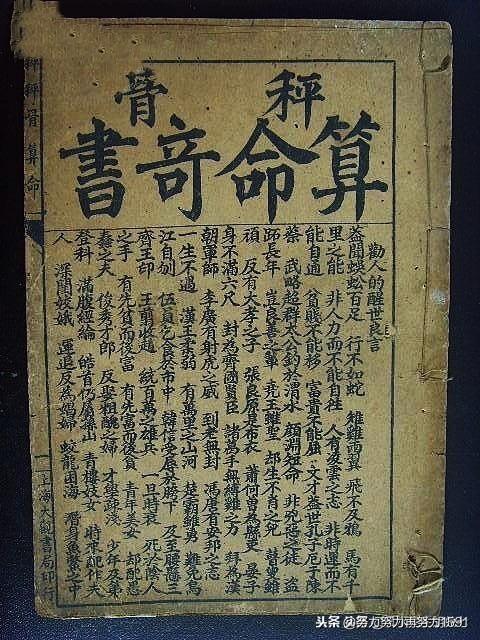 秤骨
算命奇書
勸人的醒世良言
蓋聞蜈蚣百足 行不如蛇 雄雞兩翼 飛不及鴉 馬有千
里之能 非人力而不能自往 人有凌雲之志 非時運而不
能自通 貧賤不能移 富貴不能屈 文才蓋世孔子厄于陳
蔡 武略超群太公釣於渭水 顏淵短命 非兇惡之徒 盜
跖長年 豈良善之輩 堯王雖聖 却生不肖之兒 瞽叟雖
頑 反有大孝之子 張良原是布衣 蕭何曾為縣吏 晏子
身不滿六尺 封為齊國賢臣 諸葛手無縛雞之力 拜為漢
朝軍師 李廣有射虎之威 到老無封 馮唐有安邦之志
一生不遇 漢王柔弱 有萬里之山河 楚霸雖勇 難免烏
江自刎 伍員乞食於市中 韓信受辱於胯下 及至腰懸三
齊王印 王翦收趙 統百萬之雄兵 一旦時衰 死於陰人
之手 有先貧而後富 有先富而後貧 青年美女 却配愚
蠢之夫 俊秀才郎 反娶粗醜之婦 才學疎淺 少年及第
登科 滿腹經綸 皓首仍屬孫山 青樓妓女 時來配作夫
人 深閨姣娥 運退反為娼婦 蛟龍困海 潛身魚鱉之中
秤骨算命
上海大觀書局印行
头条 @努力努力再努力1591